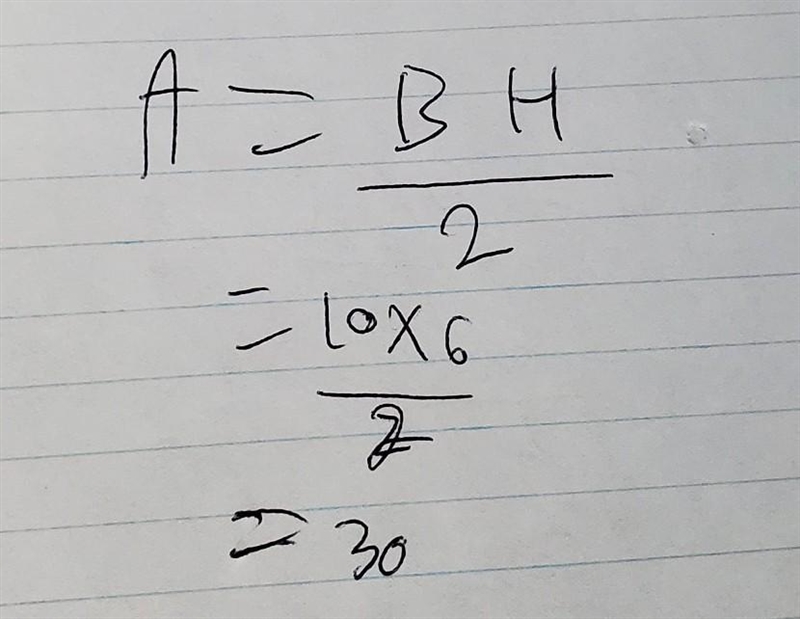 A = B H
2
= 10 x 6
2
= 30